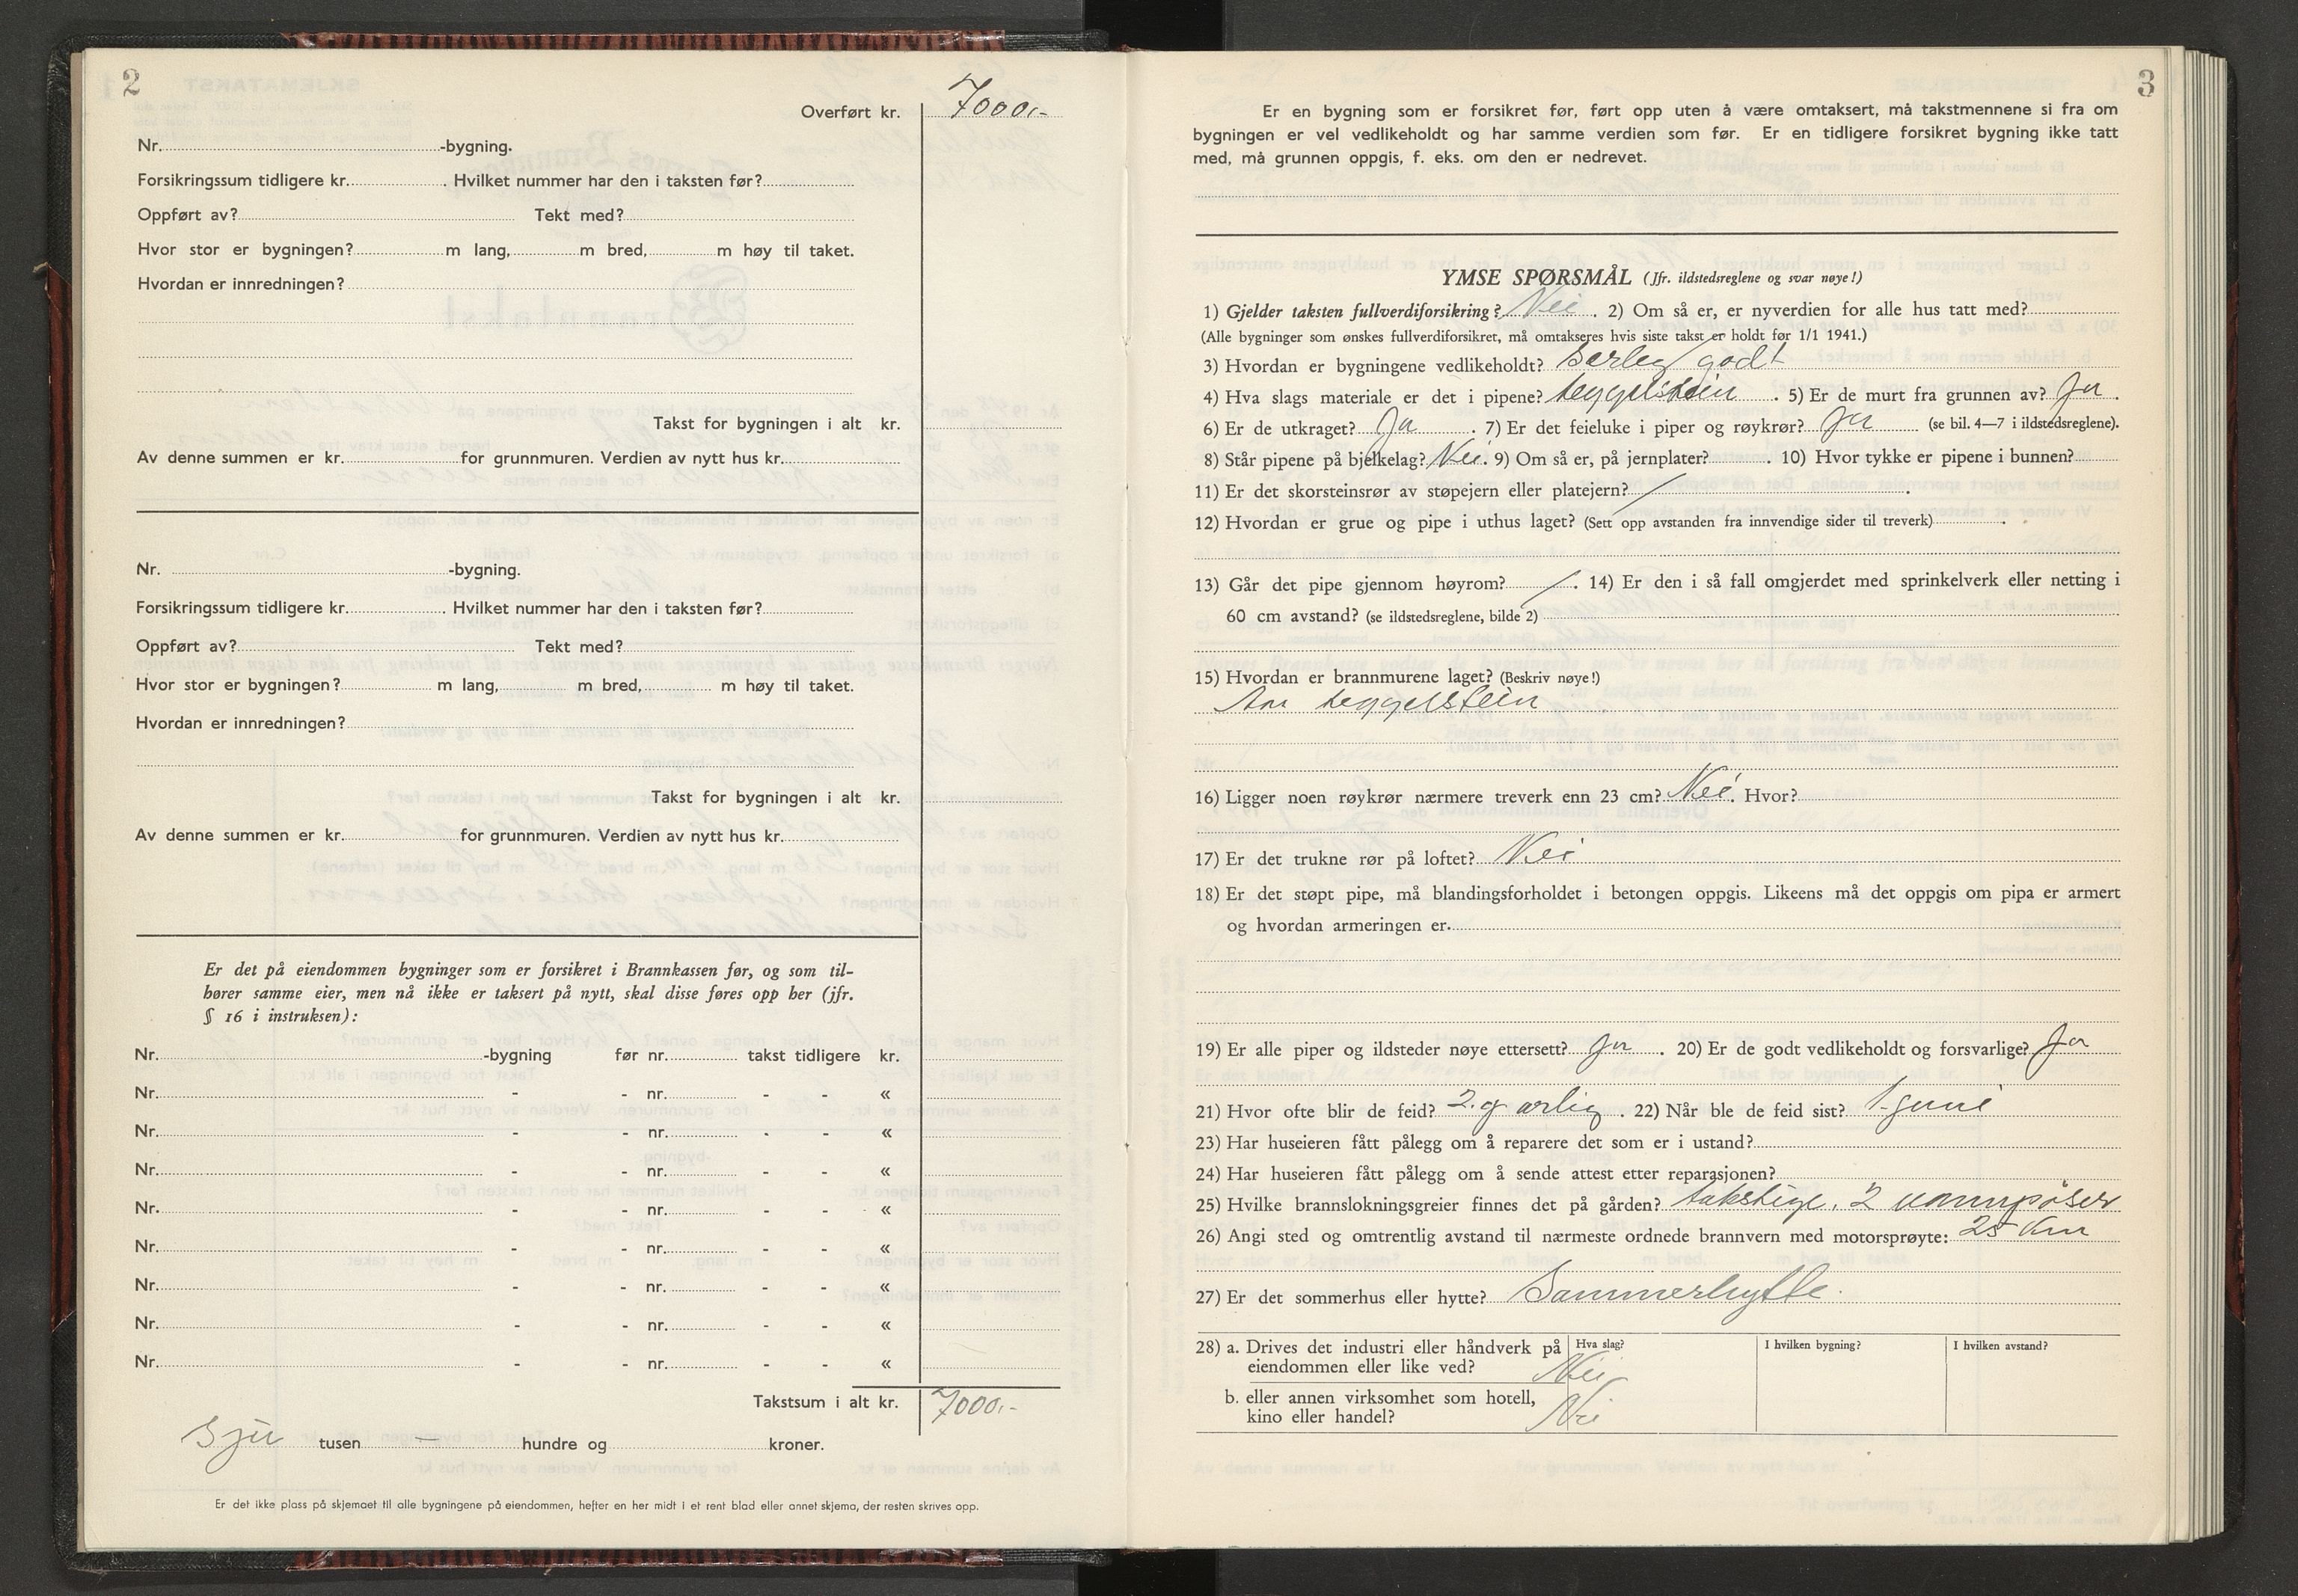 2
Overført kr. 7000,-
Nr. -bygning.
Forsikringssum tidligere kr. . Hvilket nummer har den i taksten før?
Oppført av? Tekt med?
Hvor stor er bygningen? m lang, m bred, m høy til taket.
Hvordan er innredningen?
Takst for bygningen i alt kr.
Av denne summen er kr. for grunnmuren. Verdien av nytt hus kr.
Nr. -bygning.
Forsikringssum tidligere kr. . Hvilket nummer har den i taksten før?
Oppført av? Tekt med?
Hvor stor er bygningen? m lang, m bred, m høy til taket.
Hvordan er innredningen?
Takst for bygningen i alt kr.
Av denne summen er kr. for grunnmuren. Verdien av nytt hus kr.
Er det på eiendommen bygninger som er forsikret i Brannkassen før, og som til-
hører samme eier, men nå ikke er taksert på nytt, skal disse føres opp her (jfr.
§ 16 i instruksen):
Nr. -bygning før nr. takst tidligere kr.
Nr. - - nr. - - «
Nr. - - nr. - - «
Nr. - - nr. - - «
Nr. - - nr. - - «
Nr. - - nr. - - «
Nr. - - nr. - - «
Nr. - - nr. - - «
Nr. - - nr. - - «
Takstsum i alt kr. 7000,-
Sju tusen — hundre og kroner.
Er det ikke plass på skjemaet til alle bygningene på eiendommen, hefter en her midt i et rent blad eller annet skjema, der resten skrives opp.
3
Er en bygning som er forsikret før, ført opp uten å være omtaksert, må takstmennene si fra om
bygningen er vel vedlikeholdt og har samme verdien som før. Er en tidligere forsikret bygning ikke tatt
med, må grunnen oppgis, f. eks. om den er nedrevet.
YMSE SPØRSMÅL (Jfr. ildstedsreglene og svar nøye!)
1) Gjelder taksten fullverdiforsikring? Nei . 2) Om så er, er nyverdien for alle hus tatt med?
(Alle bygninger som ønskes fullverdiforsikret, må omtakseres hvis siste takst er holdt før 1/1 1941.)
3) Hvordan er bygningene vedlikeholdt? Særleg godt
4) Hva slags materiale er det i pipene? teggelstein . 5) Er de murt fra grunnen av? Ja .
6) Er de utkraget? Ja . 7) Er det feieluke i piper og røykrør? Ja (se bil. 4—7 i ildstedsreglene).
8) Står pipene på bjelkelag? Nei . 9) Om så er, på jernplater? . 10) Hvor tykke er pipene i bunnen?
11) Er det skorsteinsrør av støpejern eller platejern? / .
12) Hvordan er grue og pipe i uthus laget? (Sett opp avstanden fra innvendige sider til treverk) .
13) Går det pipe gjennom høyrom? / . 14) Er den i så fall omgjerdet med sprinkelverk eller netting i
60 cm avstand? (se ildstedsreglene, bilde 2)
15) Hvordan er brannmurene laget? (Beskriv nøye!)
Av teggelstein
16) Ligger noen røykrør nærmere treverk enn 23 cm? Nei . Hvor?
17) Er det trukne rør på loftet? Nei
18) Er det støpt pipe, må blandingsforholdet i betongen oppgis. Likeens må det oppgis om pipa er armert
og hvordan armeringen er.
19) Er alle piper og ildsteder nøye ettersett? Ja . 20) Er de godt vedlikeholdt og forsvarlige? Ja
21) Hvor ofte blir de feid? 2. g årlig . 22) Når ble de feid sist? 1. juni
23) Har huseieren fått pålegg om å reparere det som er i ustand?
24) Har huseieren fått pålegg om å sende attest etter reparasjonen?
25) Hvilke brannslokningsgreier finnes det på gården? takstige, 2 vannpøser
26) Angi sted og omtrentlig avstand til nærmeste ordnede brannvern med motorsprøyte: 25 km
27) Er det sommerhus eller hytte? Sommerhytte.
28) a. Drives det industri eller håndverk på Hva slag? I hvilken bygning? I hvilken avstand?
eiendommen eller like ved? Nei
b. eller annen virksomhet som hotell,
kino eller handel? Nei